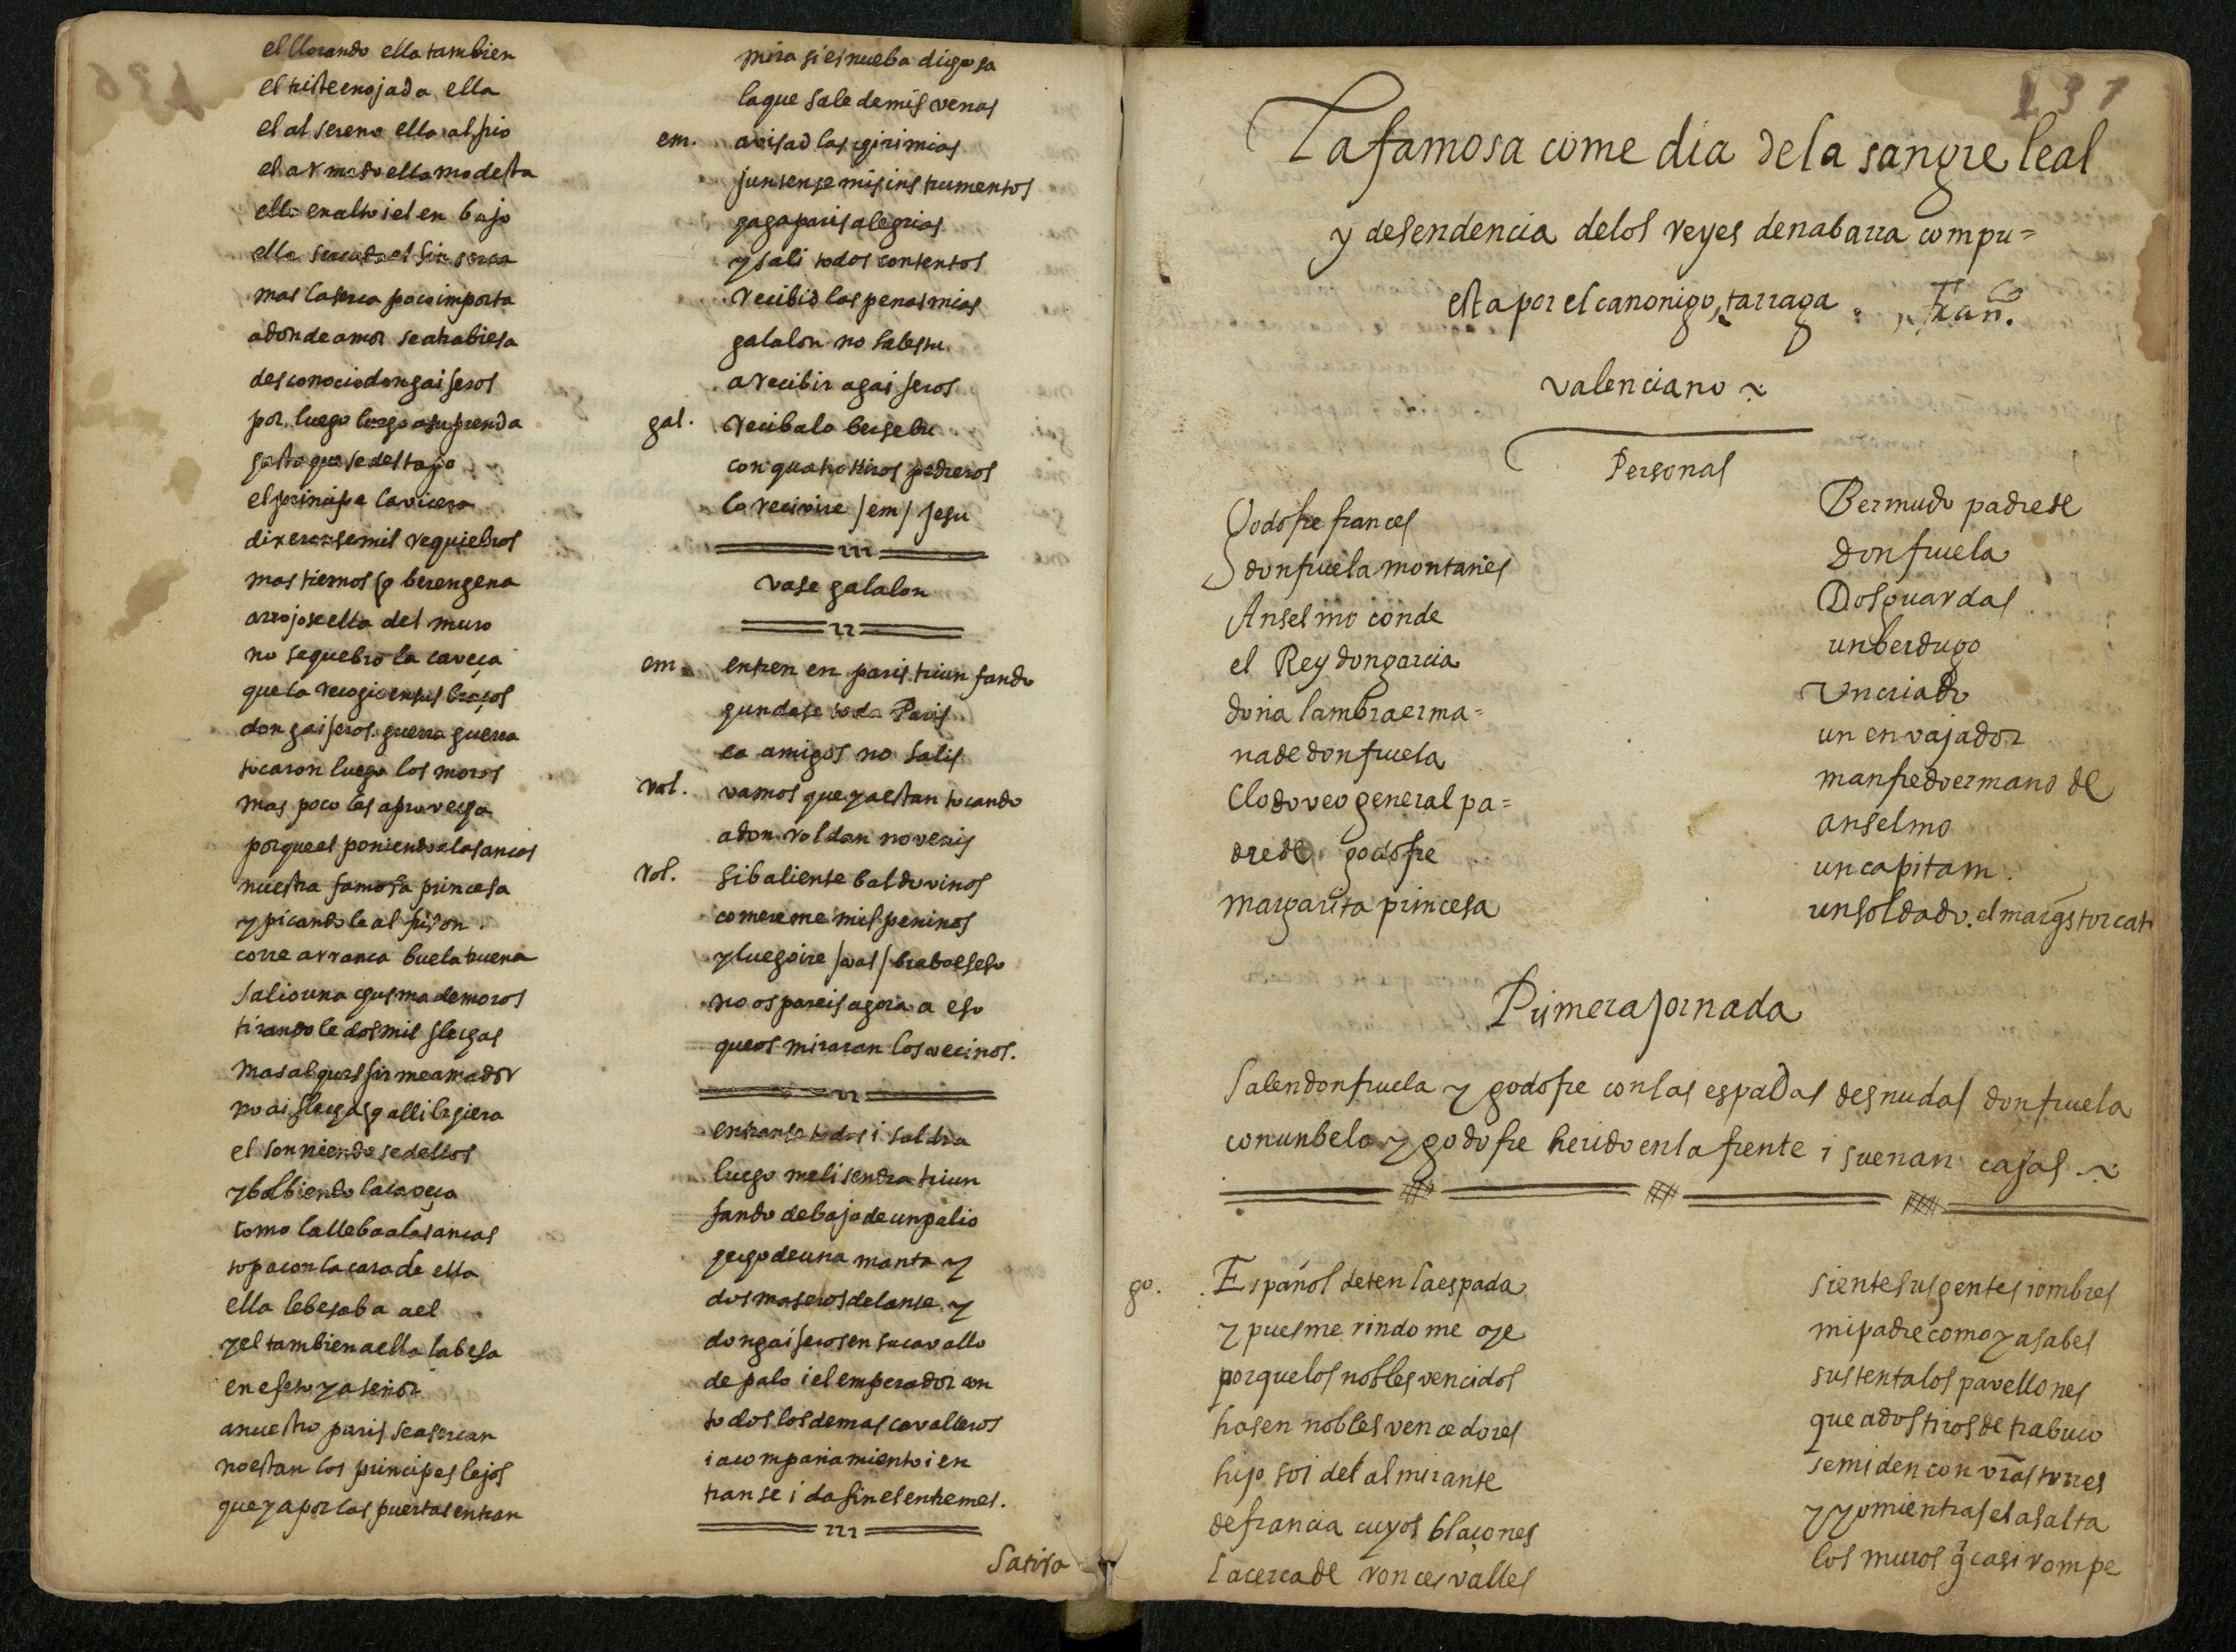 el llorando ella tambien
el triste enojada ella
el al sereno ella al frio
el armado ella modesta
ella en alto i el en bajo
ella sercada el sin serca
mas la serca poco importa
adonde amor se atrabiesa
desconocio don gaiferos
por luego luego a su prenda
hasta que se destapo
el principe la vicera
dixeronse mil requiebros
mas tiernos q berengena
arrojose ella del muro
no se quebro la caveça
que la recogio en sus braços
don gaiferos guerra guerra
tocaron luego los moros
mas poco les aprovecha
porque el poniendo a las ancas
nuestra famosa princesa
y picandole al frison
corre arranca buela truena
salio una chusma de moros
tirandole dos mil flechas
mas al ques firme amador
no ai flechas q alli le hiera
el sonriendose dellos
y bolbiendo la caveça
como la lleba a las ancas
topa con la cara de ella
ella le besaba a el
y el tambien a ella la besa
en efeto ya señor
a nuestro paris se asercan
no estan los principes lejos
que ya por las puertas entran
mira si es nueba dichosa
la que sale de mis venas
em. avisad las chirimias
juntense mis instrumentos
haga paris alegrias
y sali todos contentos
recibid las penas mias
galalon no sales tu
a recibir a gaiferos
gal. recibalo berzebu
con quatro tiros pedreros
lo recivire / em / jesu
vase galalon
em entren en paris triunfando
hundase toda Paris
ea amigos no salis
val. vamos que ya estan tocando
a don roldan no venis
rol. si baliente baldovinos
comereme mis peninos
y luego ire / val / brabo eseso
no os pareis agora a eso
que os miraran los vecinos.
entranse todos i saldra
luego melisendra triun
fando debajo de un palio
hecho de una manta y
dos maseros delante y
don gaiferos en su cavallo
de palo i el emperador con
todos los demas cavalleros
i acompañamiento i en
transe i da fin el entremes.
137
La famosa comedia de la sangre leal
y desendencia de los reyes de nabarra compu=
esta por el canonigo tarraga
valenciano
Personas
Godofre frances
don fruela montañes
Anselmo conde
el Rey don garcia
doña lambra erma=
na de don fruela
Clodoveo general pa=
dre de godofre
margarita princesa
Bermudo padre de
don fruela
Dos guardas
un berdugo
Un criado
un envajador
manfredo ermano de
anselmo
un capitam.
un soldado. el marqs torcat
Primera jornada
Salen don fruela y godofre con las espadas desnudas don fruela
con un belo y godofre herido en la frente i suenan cajas
go. Español deten la espada
y pues me rindo me oye
porque los nobles vencidos
hasen nobles vencedores
hijo soi del almirante
de francia cuyos blaçones
la cerca de ronces valles
siente sus gentes i ombres
mi padre como ya sabes
sustenta los pavellones
que a dos tiros de trabuco
se miden con vras torres
y yo mientras el asalta
los muros q casi rompe